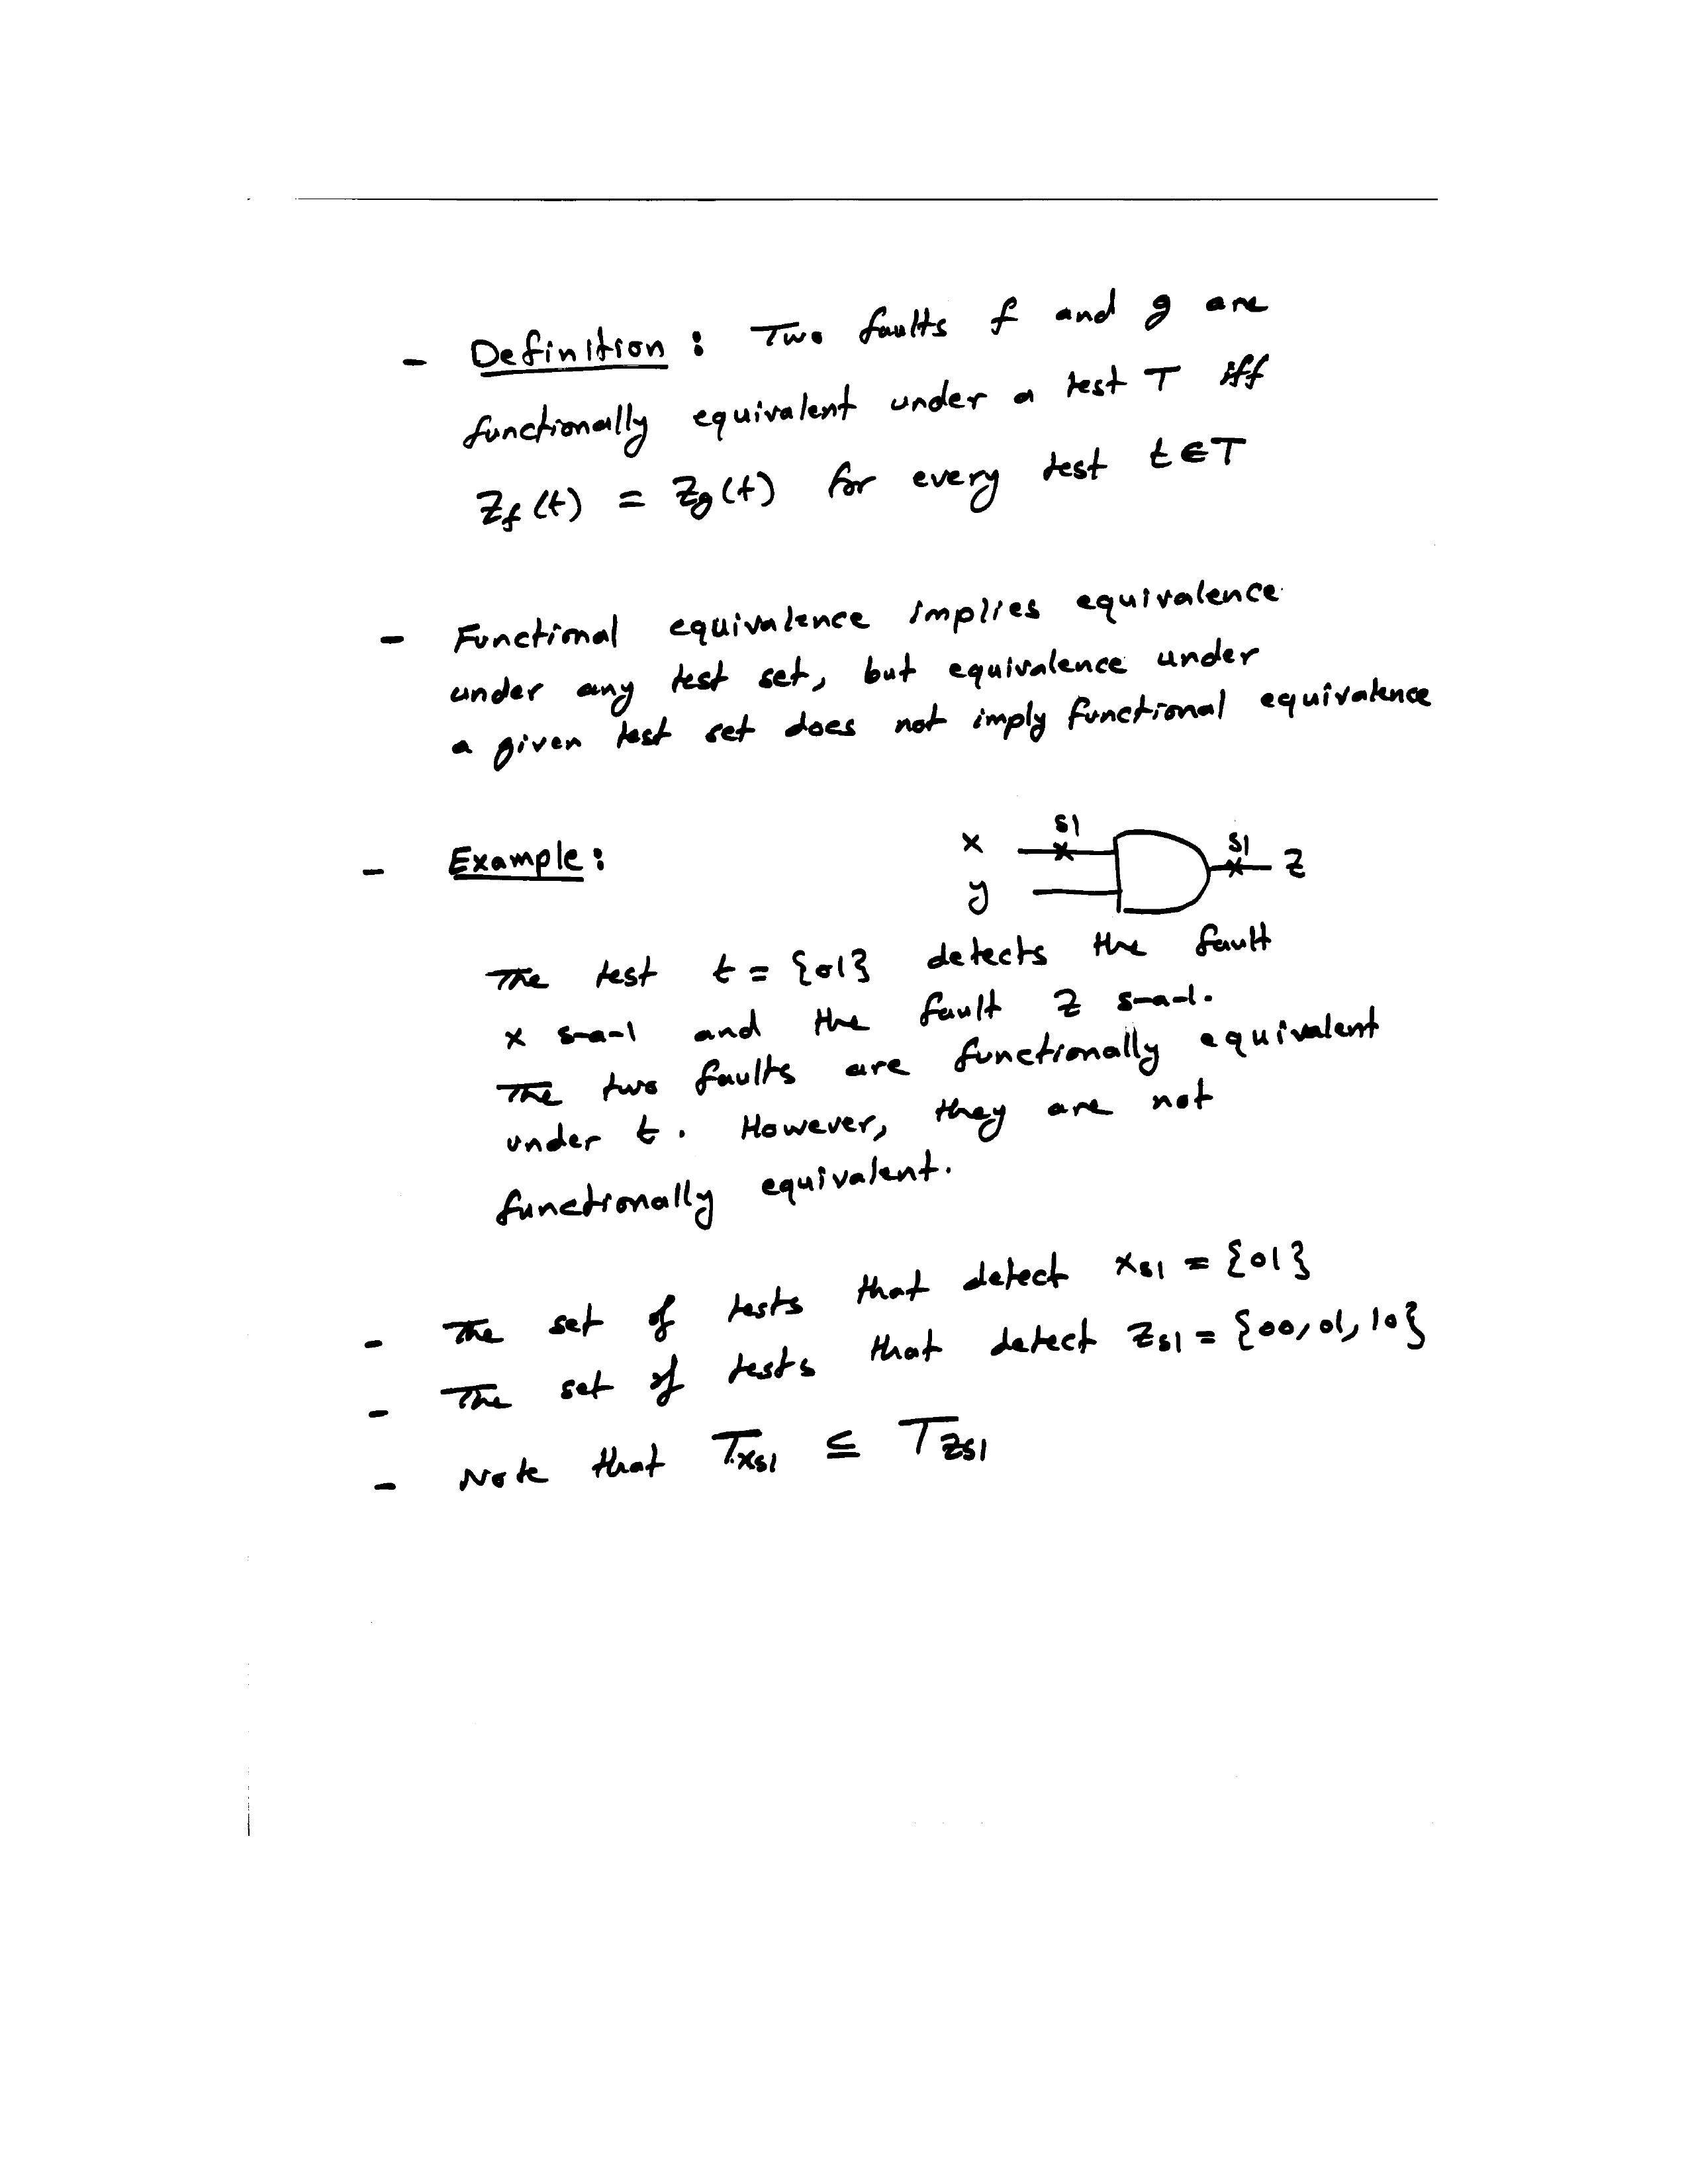 - Definition : Two faults f and g are
functionally equivalent under a test T iff
Z_f (t) = Z_g (t) for every test t ∈ T
- Functional equivalence implies equivalence
under any test set, but equivalence under
a given test set does not imply functional equivalence
- Example :
x s1 s1 z
y
The test t = {01} detects the fault
x s-a-1 and the fault z s-a-1.
The two faults are functionally equivalent
under t. However, they are not
functionally equivalent.
- The set of tests that detect x_s1 = {01}
- The set of tests that detect z_s1 = {00, 01, 10}
- Note that T_xs1 ⊆ T_zs1